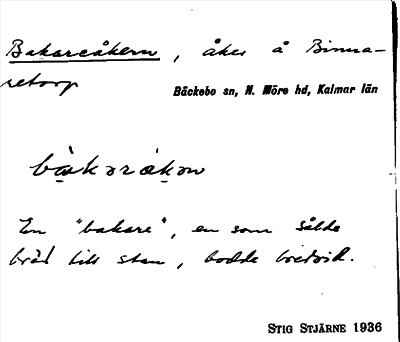 Bakareåkern, åker å Binna-
retorp
Bäckebo sn, N. Möre hd, Kalmar län
bàkarákǝn
En "bakare", en som sålde
bröd till stan, bodde bredvid.
STIG STJÄRNE 1936